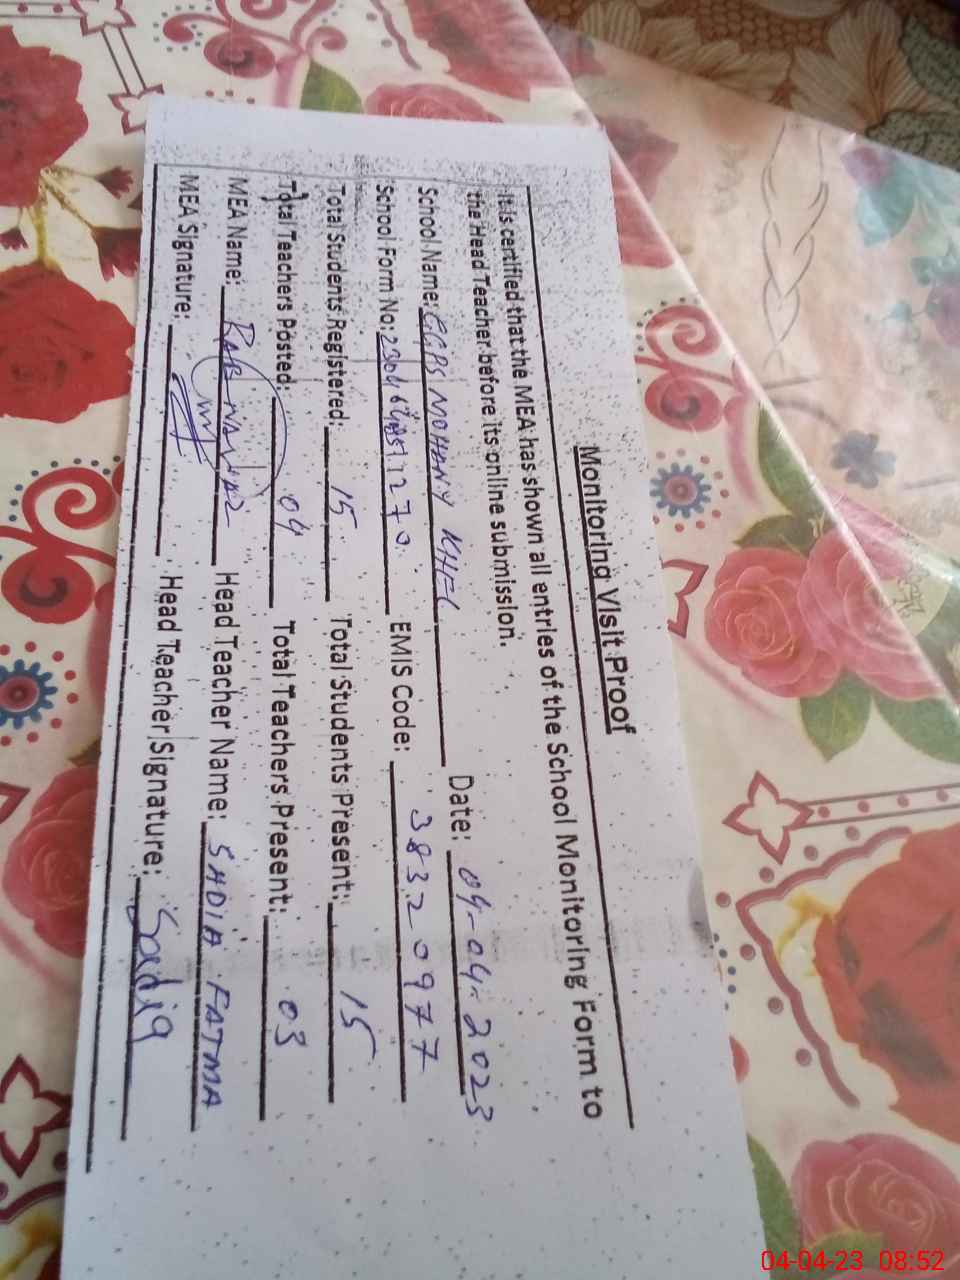 Monitoring Visit Proof
It is certified that the MEA has shown all entries of the School Monitoring Form to
the Head Teacher before its online submission.
School Name: GGPS MOHANY KHEL Date: 04-04-2023
School Form No: EMIS Code: 38320977
Total Students Registered: 15 Total Students Present: 15
Total Teachers Posted: 04 Total Teachers Present: 03
MEA Name: RAB NAWAZ Head Teacher Name: SADIA FATMA
MEA Signature: Head Teacher Signature: Sadia
04-04-23 08:52